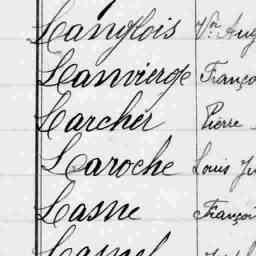 Langlois Vve Aug
Lanvierge Franço
Larcher Pierre
Laroche Louis Ju
Lasne Françoi